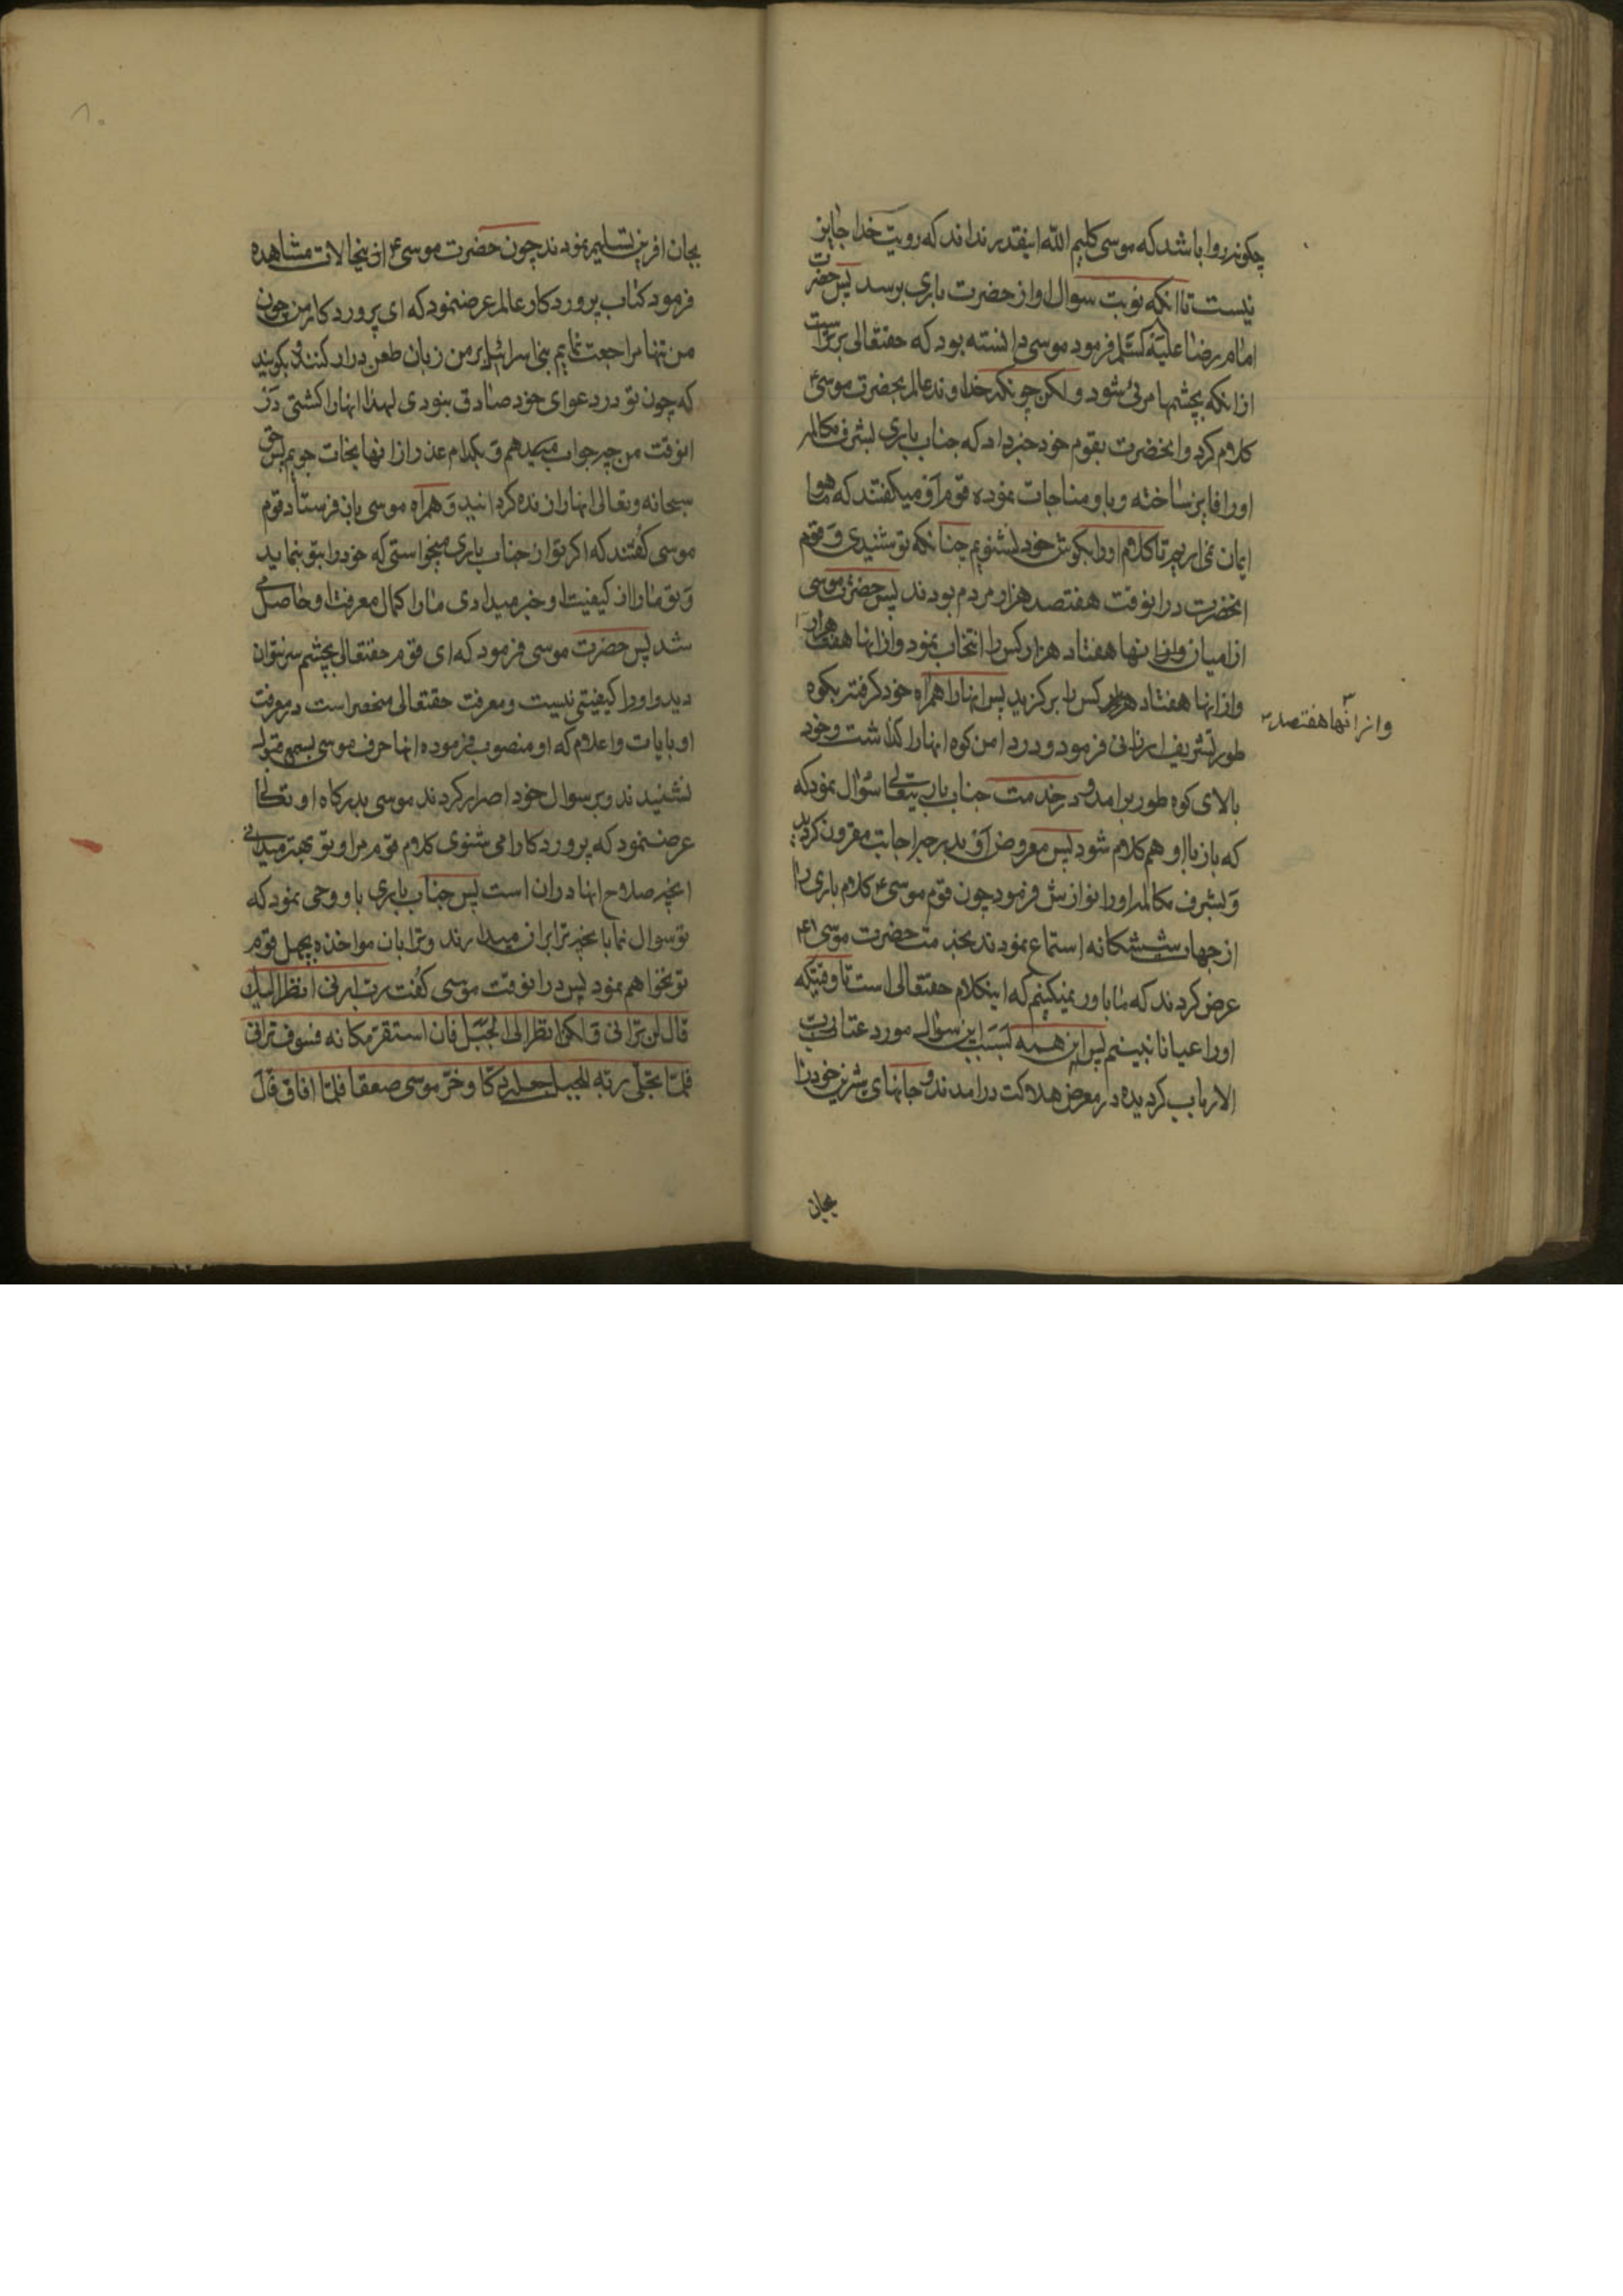 چکونه روا باشد که موسی کلیم الله اینقدر نداند که رویت خدا جایز
نیست تا انکه نوبت سوال او از حضرت باری برسد پس حضرت
امام رضا علیه السلم فرمود موسی دانسته بود که حقتعالی برتر است
از انکه بچشمها مرئی شود و لکن چونکه خداوند عالم بحضرت موسی ع
کلام کرد و انحضرت بقوم خود خبر داد که جناب باری بشرف مکالمه
او را فایز ساخته و با و مناجات نموده قوم او میکفتند که ما هم
ایمان نمی اریم تا کلام او را بکوش خود نشنویم چنانکه تو شنیدی و قوم
انحضرت در انوقت هفتصد هزار مردم بودند پس حضرت موسی
از میان انها هفتاد هزار کس را انتخاب نمود و از انها هفت هزار
وازانها هفتاد کس را برکزید پس انها را همراه خود کرفته بکوه
طور تشریف ارزانی فرمود و در دامن کوه انها را کذاشت و خود
بالای کوه طور برامد و در خدمت جناب باریتعالی سؤال نمود که
که باز با او هم کلام شود پس معروض او بدرجه اجابت مقرون کردید
و بشرف مکالمه او را نوازش فرمود چون قوم موسی ع کلام باری را
از جهات ششکانه استماع نمودند بخدمت حضرت موسی
عرض کردند که ما باور نمیکنیم که اینکلام حقتعالی است تا وقتیکه
او را عیانا نبینیم پس این همه بسبب این سوال مورد عتاب رب
الارباب کردیده در معرض هلاکت درامدند و جانهای شیرین خود را
وازانها هفتصد
بجان
بجان افرین تسلیم نمودند چون حضرت موسی ع اینحالات مشاهده
فرمود کتاب پروردکار عالم عرضنمود که ای پروردکار من چون
من تنها مراجعت نمایم بنی اسرائیل بر من زبان طعن دراز کنند و بکویند
که چون تو در دعوای خود صادق نبودی لهذا انها را کشتی در
انوقت من چه جواب میدهم و بکدام عذر از انها نجات جویم پس حق
سبحانه و تعالی انها را زنده کردانید و همراه موسی باز فرستاد قوم
موسی کفتند که اکر تو از جناب باری میخواستی که خود را بتو بنماید
و تو ما را از کیفیت او خبر میدادی ما را کمال معرفت او حاصل
شد پس حضرت موسی فرمود که ای قوم حقتعالی بچشم سر نتوان
دید و او را کیفیتی نیست و معرفت حقتعالی منحصر است در معرفت
او بایات و اعلام که او منصوب فرموده انها حرف موسی بسمع قبول
نشنیدند و بر سوال خود اصرار کردند موسی بدرکاه او تعالی
عرضنمود که پروردکارا می شنوی کلام قوم مرا و تو بهتر میدانی
انچه صلاح انها دران است پس جناب باری با و وحی نمود که
تو سوال نما بانچه ترا بران میدارند و ترا بان مواخذه بجهل قوم
تو نخواهم نمود پس در انوقت موسی کفت رب ارنی انظر الیک
قال لن ترانی و لکن انظر الی الجبل فان استقر مکانه فسوف ترانی
فلما تجلی ربه للجبل جعله دکا و خر موسی صعقا فلما افاق قال